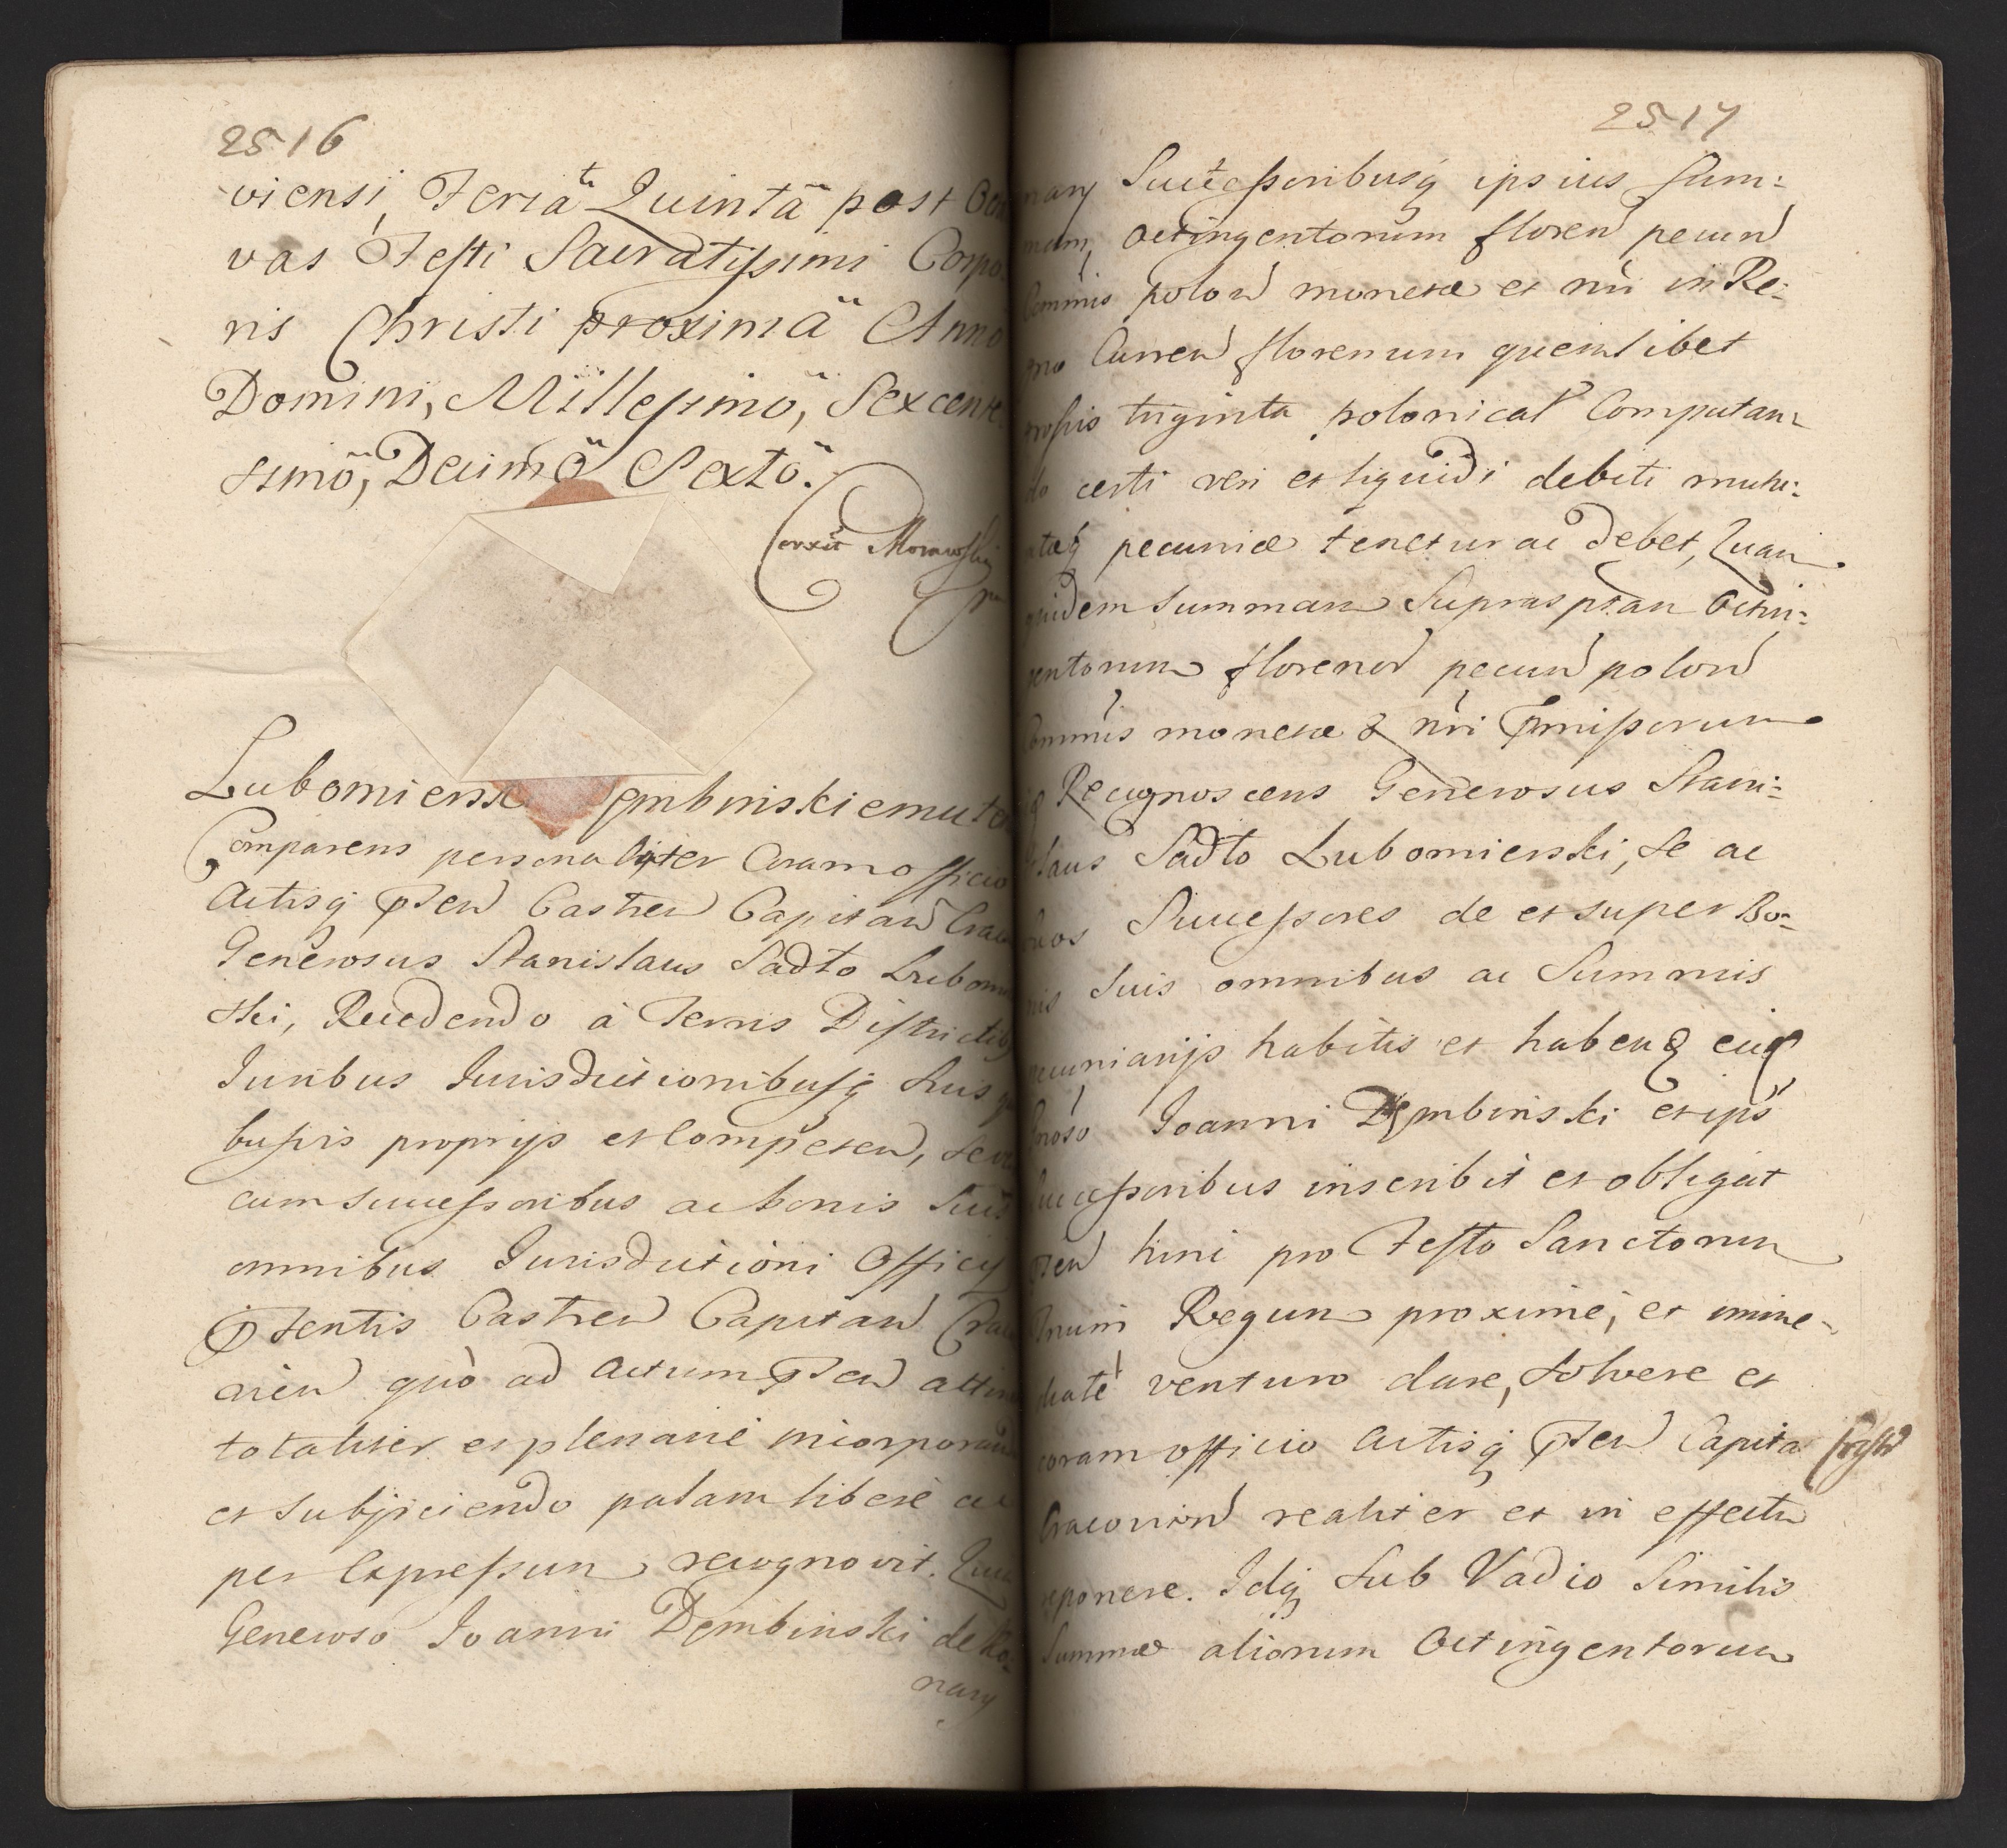 2516
viensi, Feriâ Quintâ post Octa
vas Festi Sacratissimi Corpo:
ris Christi proximâ Anno
Domini, Millesimo, Sexcente
simô, Decimô Sextô.
Corxit Morawski
Lubomiersk Dembinskiemu
Comparens personaliter Coram officio
Actisq pñten Castren Capitan Crac
Generosus Stanislaus Sadło Lubomi
ski, Recedendo à Terris Districtib
Iuribus Iurisdictionibusq suis
busvis proprijs et Competen, se
cum successoribus ac bonis suis
omnibus Iurisdictioni Officij
pñtentis Castren Capitan Crac
vien quò ad actum pñten attin
totaliter et plenarie incorporan
et subjiciendo palam libere ac
per Expressum recognovit. Quia
Generoso Ioanni Dembinski de Ko:
nary
2517
nary Successoribusq ipsius sum:
mam, octingentorum floren pecun
Commis polon moneta et nri in Re:
gno Curren florenum quemlibet
grossis triginta polonical Computan:
do certi veri et liquidi debiti mutu:
atæq pecuniæ tenetur ac debet, Quam
quidem summam Suprascptam Octin:
gentorum florenor pecun polon
Commis moneta & nri pmissorum
Recognoscens Generosus Stani:
slaus Sadło Lubomierski, se ac
suos Successores de et super Bo:
nis suis omnibus ac Summis
pecuniarijs habitis et haben eid
Gnoso Ioanni Dembinski et ips
Successoribus inscribit et obligat
pñten hinc pro Festo Sanctorum
Trium Regum proxime, et imme:
diate venturo dare, solvere et
coram officio Actisq pñten Capita Castr
Cracovien realiter et in effectu
reponere. Idq sub Vadio Similis
Summæ aliorum Octingentorum